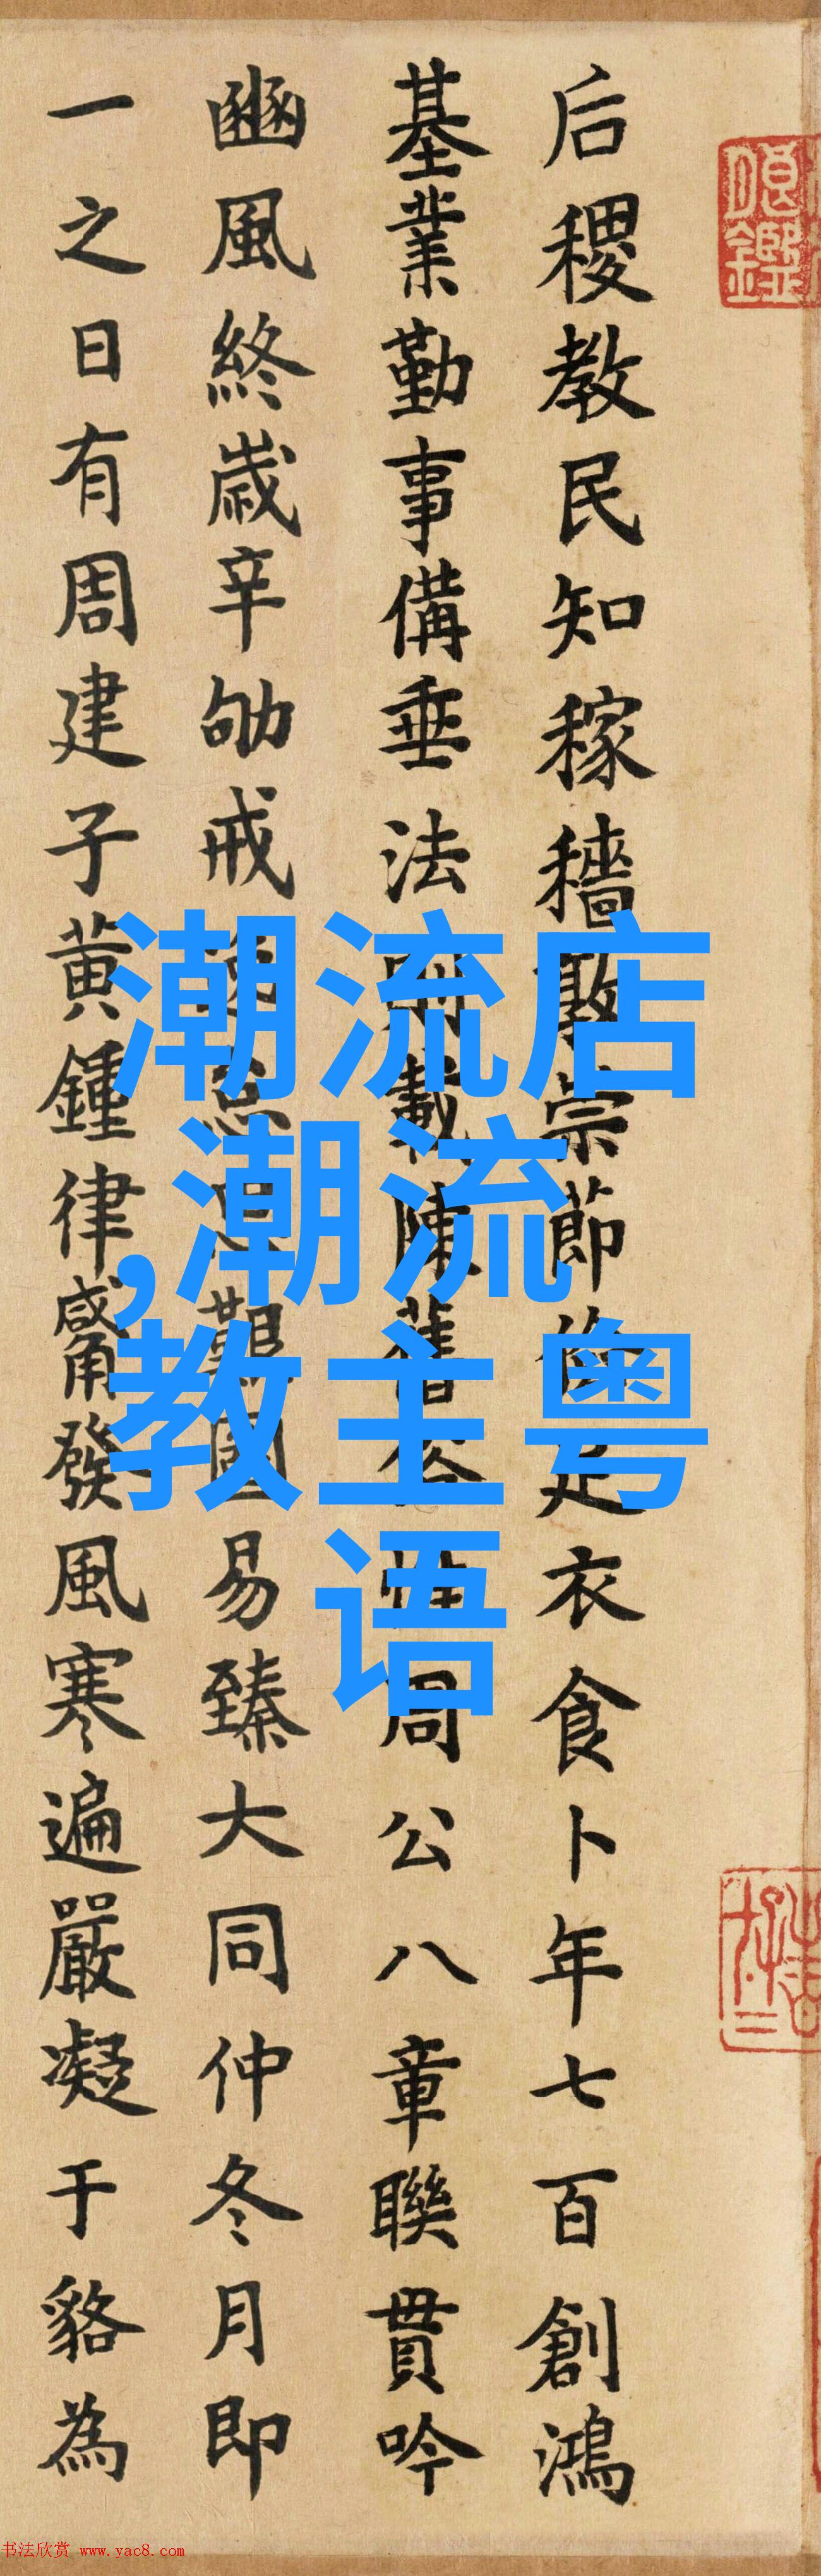 后稷教民知稼穡敦崇節儉足衣食卜年七百創鴻
基業勤事備垂法則載陳舊俗惟周公八章聯貫吟
豳風終歲辛劬戒思艱圖易臻大同仲冬月即
一之日有周建子黃鍾律觱發風寒遍嚴凝于貉為
潮流店
,潮流
教主粤
语
书法欣赏 www.yac8.com